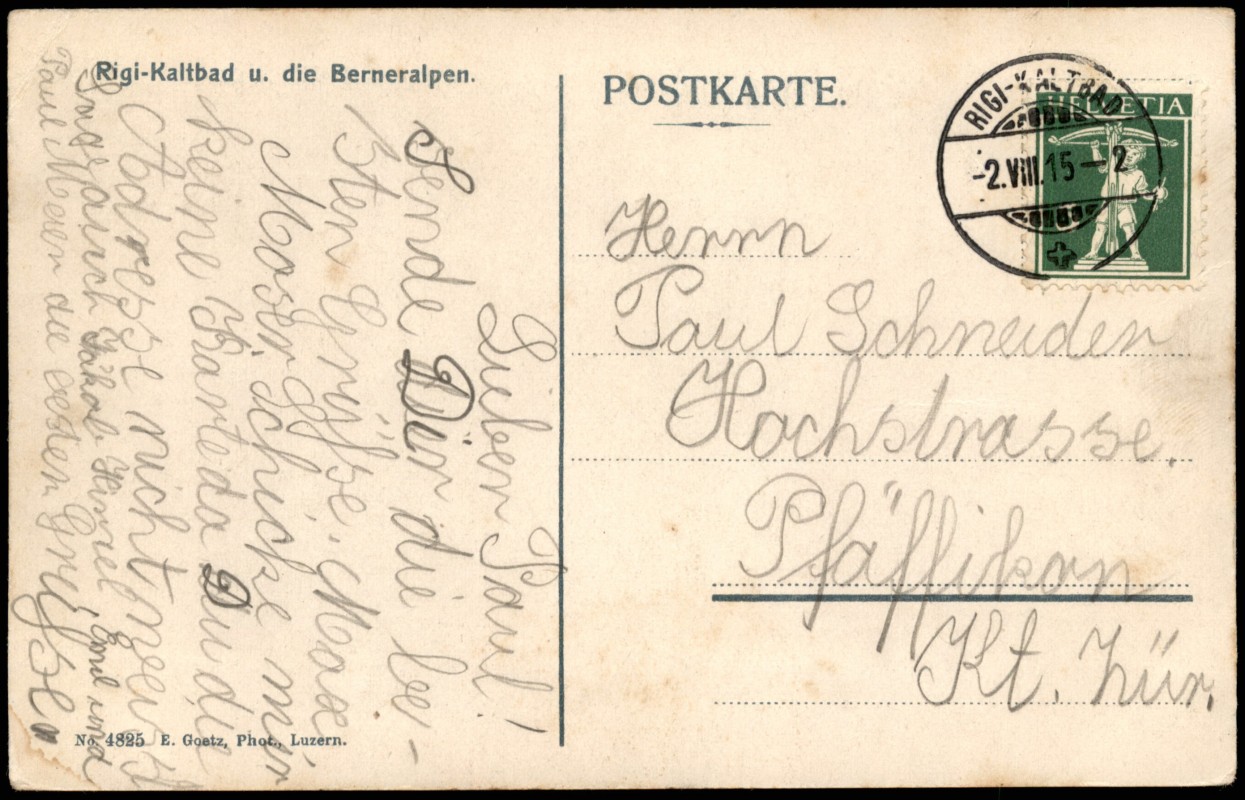 Rigi-Kaltbad u. die Berneralpen.
POSTKARTE.
RIGI-KALTBAD
-2.VIII.15-2
HELVETIA
Herrn
Paul Schneider
Hochstrasse.
Pfäffikon
Kt. Zür.
Lieber Paul!
Sende Dir die be-
sten Grüsse, Maxe
Moser schicke mir
keine Karte da Du die
Adresse nicht
und
Paul Meren die besten Grüsse
No. 4825 E. Goetz, Phot., Luzern.